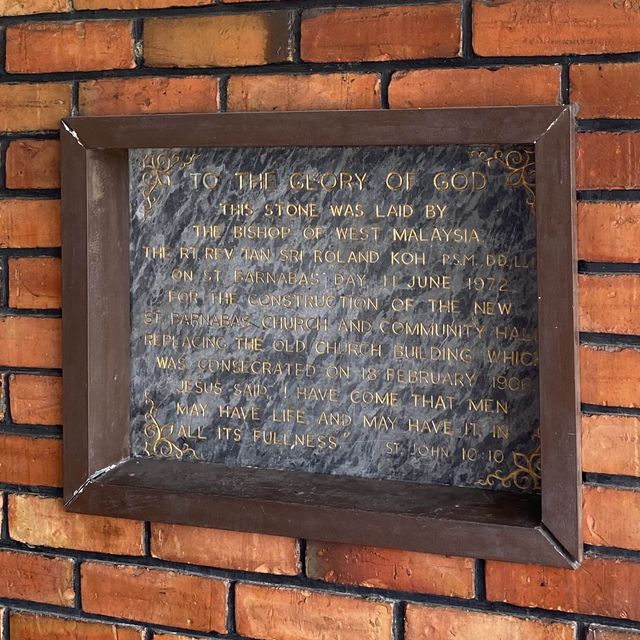 TO THE GLORY OF GOD
THIS STONE WAS LAID BY
THE BISHOP OF WEST MALAYSIA
THE RT. REV. TAN SRI ROLAND KOH P.S.M. D.D.,
ON ST. BARNABAS' DAY, 11 JUNE 1972
FOR THE CONSTRUCTION OF THE NEW
ST. BARNABAS CHURCH AND COMMUNITY HAL
REPLACING THE OLD CHURCH BUILDING WHIC
WAS CONSECRATED ON 18 FEBRUARY 1906
JESUS SAID, "I HAVE COME THAT MEN
MAY HAVE LIFE, AND MAY HAVE IT IN
ALL ITS FULLNESS."
ST. JOHN 10:10